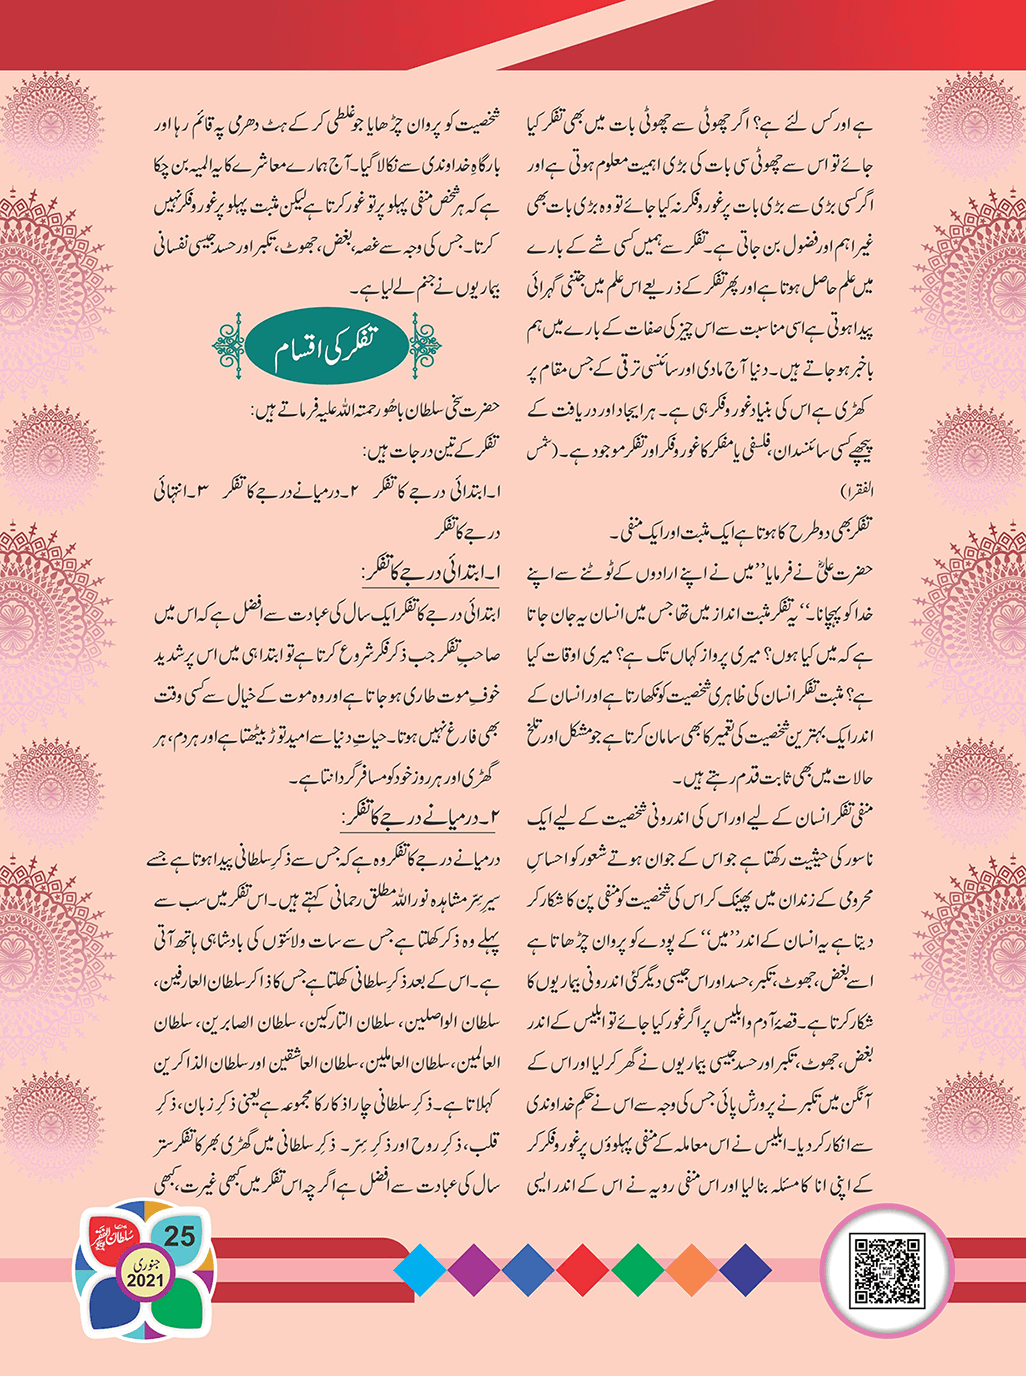 ہے اور کس لئے ہے؟ اگر چھوٹی سے چھوٹی بات میں بھی تفکر کیا
جائے تو اس سے چھوٹی سی بات کی بڑی اہمیت معلوم ہوتی ہے اور
اگر کسی بڑی سے بڑی بات پر غور و فکر نہ کیا جائے تو وہ بڑی بات بھی
غیر اہم اور فضول بن جاتی ہے۔ تفکر سے ہمیں کسی شے کے بارے
میں علم حاصل ہوتا ہے اور پھر تفکر کے ذریعے اس علم میں جتنی گہرائی
پیدا ہوتی ہے اسی مناسبت سے اس چیز کی صفات کے بارے میں ہم
باخبر ہو جاتے ہیں۔ دنیا آج مادی اور سائنسی ترقی کے جس مقام پر
کھڑی ہے اس کی بنیاد غور و فکر ہی ہے۔ ہر ایجاد اور دریافت کے
پیچھے کسی سائنسدان، فلسفی یا مفکر کا غور و فکر اور تفکر موجود ہے۔ (شمس
الفقرا)
تفکر بھی دو طرح کا ہوتا ہے ایک مثبت اور ایک منفی۔
حضرت علیؓ نے فرمایا ’’میں نے اپنے ارادوں کے ٹوٹنے سے اپنے
خدا کو پہچانا۔‘‘ یہ تفکر مثبت انداز میں تھا جس میں انسان یہ جان جاتا
ہے کہ میں کیا ہوں؟ میری پرواز کہاں تک ہے؟ میری اوقات کیا
ہے؟ مثبت تفکر انسان کی ظاہری شخصیت کو نکھارتا ہے اور انسان کے
اندر ایک بہترین شخصیت کی تعمیر کا بھی سامان کرتا ہے جو مشکل اور تلخ
حالات میں بھی ثابت قدم رہتے ہیں۔
منفی تفکر انسان کے لیے اور اس کی اندرونی شخصیت کے لیے ایک
ناسور کی حیثیت رکھتا ہے جو اس کے جوان ہوتے شعور کو احساسِ
محرومی کے زندان میں پھینک کر اس کی شخصیت کو منفی پن کا شکار کر
دیتا ہے یہ انسان کے اندر ’’میں‘‘ کے پودے کو پروان چڑھاتا ہے
اسے بغض، جھوٹ، تکبر، حسد اور اس جیسی دیگر کئی اندرونی بیماریوں کا
شکار کرتا ہے۔ قصۂ آدم و ابلیس پر اگر غور کیا جائے تو ابلیس کے اندر
بغض، جھوٹ، تکبر اور حسد جیسی بیماریوں نے گھر کر لیا اور اس کے
آنگن میں تکبر نے پرورش پائی جس کی وجہ سے اس نے حکمِ خداوندی
سے انکار کر دیا۔ ابلیس نے اس معاملہ کے منفی پہلوؤں پر غور و فکر کر
کے اپنی انا کا مسئلہ بنا لیا اور اس منفی رویہ نے اس کے اندر ایسی
شخصیت کو پروان چڑھایا جو غلطی کر کے ہٹ دھرمی پہ قائم رہا اور
بارگاہِ خداوندی سے نکالا گیا۔ آج ہمارے معاشرے کا یہ المیہ بن چکا
ہے کہ ہر شخص منفی پہلو پر تو غور کرتا ہے لیکن مثبت پہلو پر غور و فکر نہیں
کرتا۔ جس کی وجہ سے غصہ، بغض، جھوٹ، تکبر اور حسد جیسی نفسانی
بیماریوں نے جنم لے لیا ہے۔
تفکر کی اقسام
حضرت سخی سلطان باھُو رحمتہ اللہ علیہ فرماتے ہیں:
تفکر کے تین درجات ہیں:
۱۔ابتدائی درجے کا تفکر ۲۔درمیانے درجے کا تفکر ۳۔انتہائی
درجے کا تفکر
۱۔ابتدائی درجے کا تفکر:
ابتدائی درجے کا تفکر ایک سال کی عبادت سے افضل ہے کہ اس میں
صاحبِ تفکر جب ذکر فکر شروع کرتا ہے تو ابتدا ہی میں اس پر شدید
خوفِ موت طاری ہو جاتا ہے اور وہ موت کے خیال سے کسی وقت
بھی فارغ نہیں ہوتا۔ حیاتِ دنیا سے امید توڑ بیٹھتا ہے اور ہر دم، ہر
گھڑی اور ہر روز خود کو مسافر گردانتا ہے۔
۲۔درمیانے درجے کا تفکر:
درمیانے درجے کا تفکر وہ ہے کہ جس سے ذکرِ سلطانی پیدا ہوتا ہے جسے
سیرِ سِرّ مشاہدہ نور اللہ مطلق رحمانی کہتے ہیں۔ اس تفکر میں سب سے
پہلے وہ ذکر کھلتا ہے جس سے سات ولائتوں کی بادشاہی ہاتھ آتی
ہے۔ اس کے بعد ذکرِ سلطانی کھلتا ہے جس کا ذاکر سلطان العارفین،
سلطان الواصلین، سلطان التارکین، سلطان الصابرین، سلطان
العالمین، سلطان العاملین، سلطان العاشقین اور سلطان الذاکرین
کہلاتا ہے۔ ذکرِ سلطانی چار اذکار کا مجموعہ ہے یعنی ذکرِ زبان، ذکرِ
قلب، ذکرِ روح اور ذکرِ سِرّ۔ ذکرِ سلطانی میں گھڑی بھر کا تفکر ستر
سال کی عبادت سے افضل ہے اگرچہ اس تفکر میں کبھی غیرت، کبھی
سلطان الفقر
25
جنوری
2021